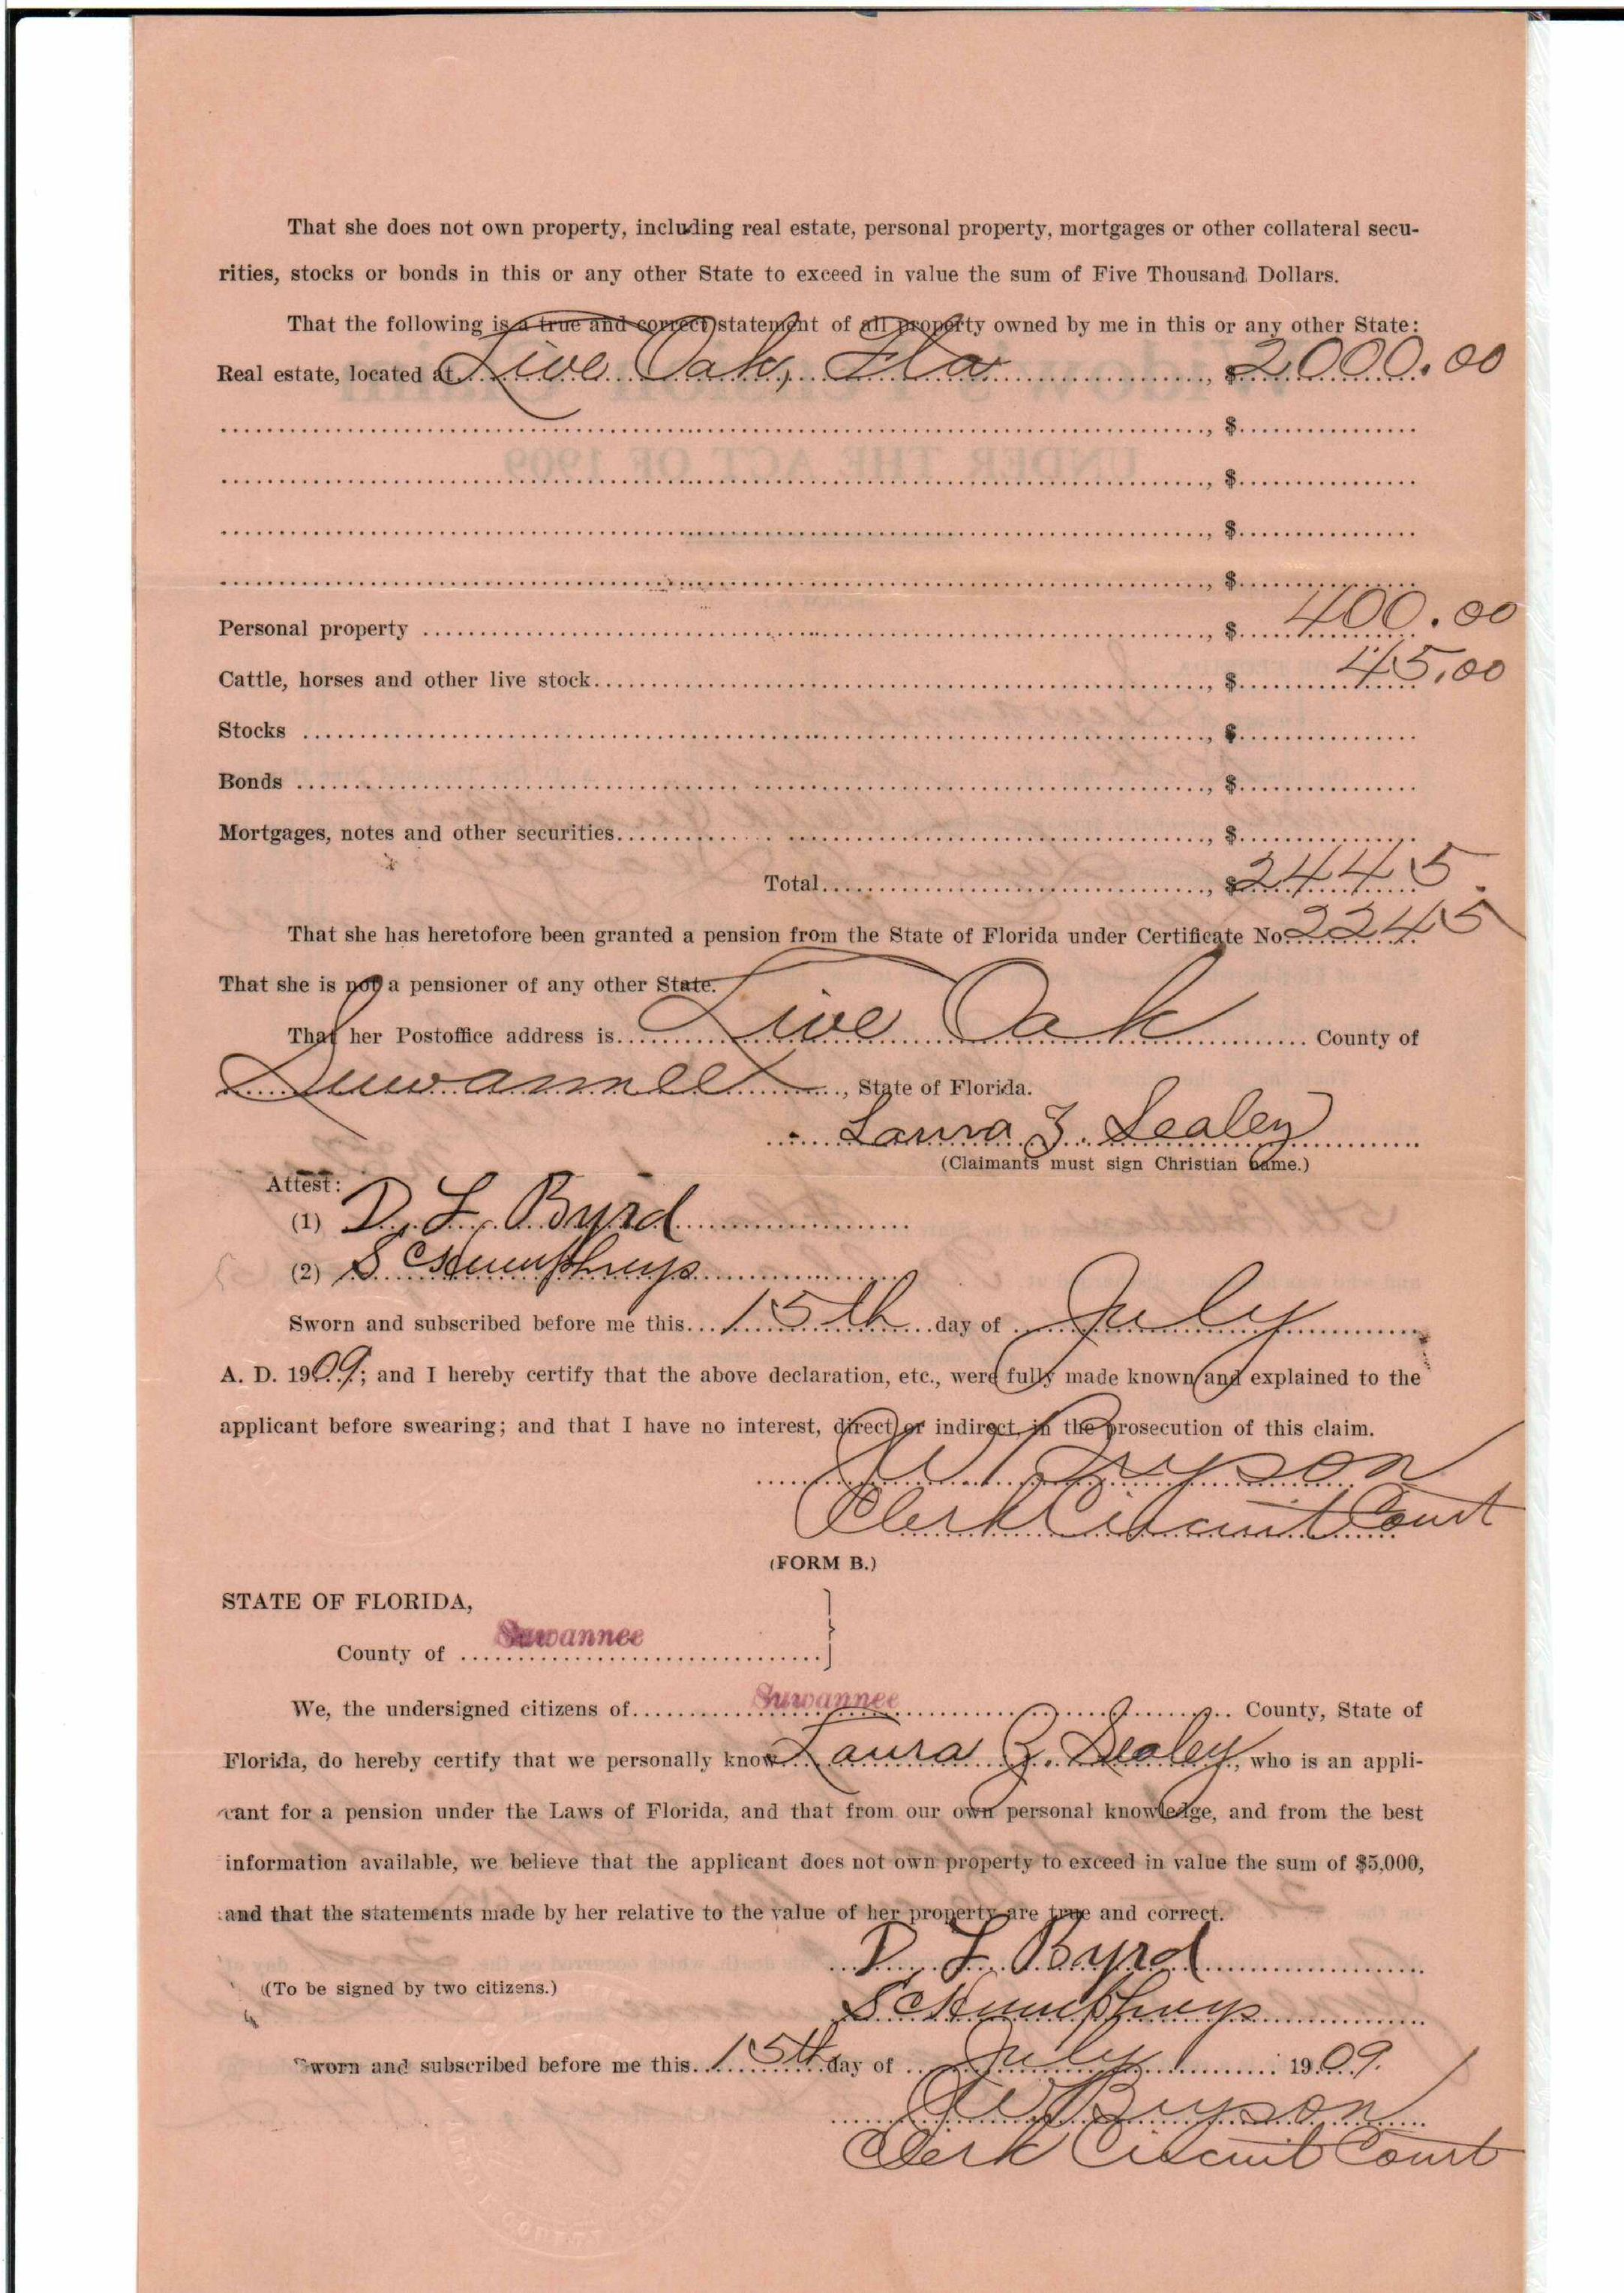 That she does not own property, including real estate, personal property, mortgages or other collateral secu-
rities, stocks or bonds in this or any other State to exceed in value the sum of Five Thousand Dollars.
That the following is a true and correct statement of all property owned by me in this or any other State:
Real estate, located at Live Oak, Fla, $2000.00
, $
, $
, $
, $
Personal property, $ 400.00
Cattle, horses and other live stock, $ 45.00
Stocks, $
Bonds, $
Mortgages, notes and other securities, $
Total, $2445.
That she has heretofore been granted a pension from the State of Florida under Certificate No. 2245
That she is not a pensioner of any other State.
That her Postoffice address is Live Oak County of
Suwannee, State of Florida.
Laura Z. Sealey
(Claimants must sign Christian name.)
Attest:
(1) D. L. Byrd
(2) S C Humphreys
Sworn and subscribed before me this 15th day of July
A. D. 1909; and I hereby certify that the above declaration, etc., were fully made known and explained to the
applicant before swearing; and that I have no interest, direct or indirect, in the prosecution of this claim.
Bryson
Clerk Circuit Court
(FORM B.)
STATE OF FLORIDA,
County of Suwannee
We, the undersigned citizens of Suwannee County, State of
Florida, do hereby certify that we personally know Laura Z. Sealey, who is an appli-
cant for a pension under the Laws of Florida, and that from our own personal knowledge, and from the best
information available, we believe that the applicant does not own property to exceed in value the sum of $5,000,
and that the statements made by her relative to the value of her property are true and correct.
D. L. Byrd
(To be signed by two citizens.)
S C Humphreys
Sworn and subscribed before me this 15th day of July 1909.
Bryson
Clerk Circuit Court